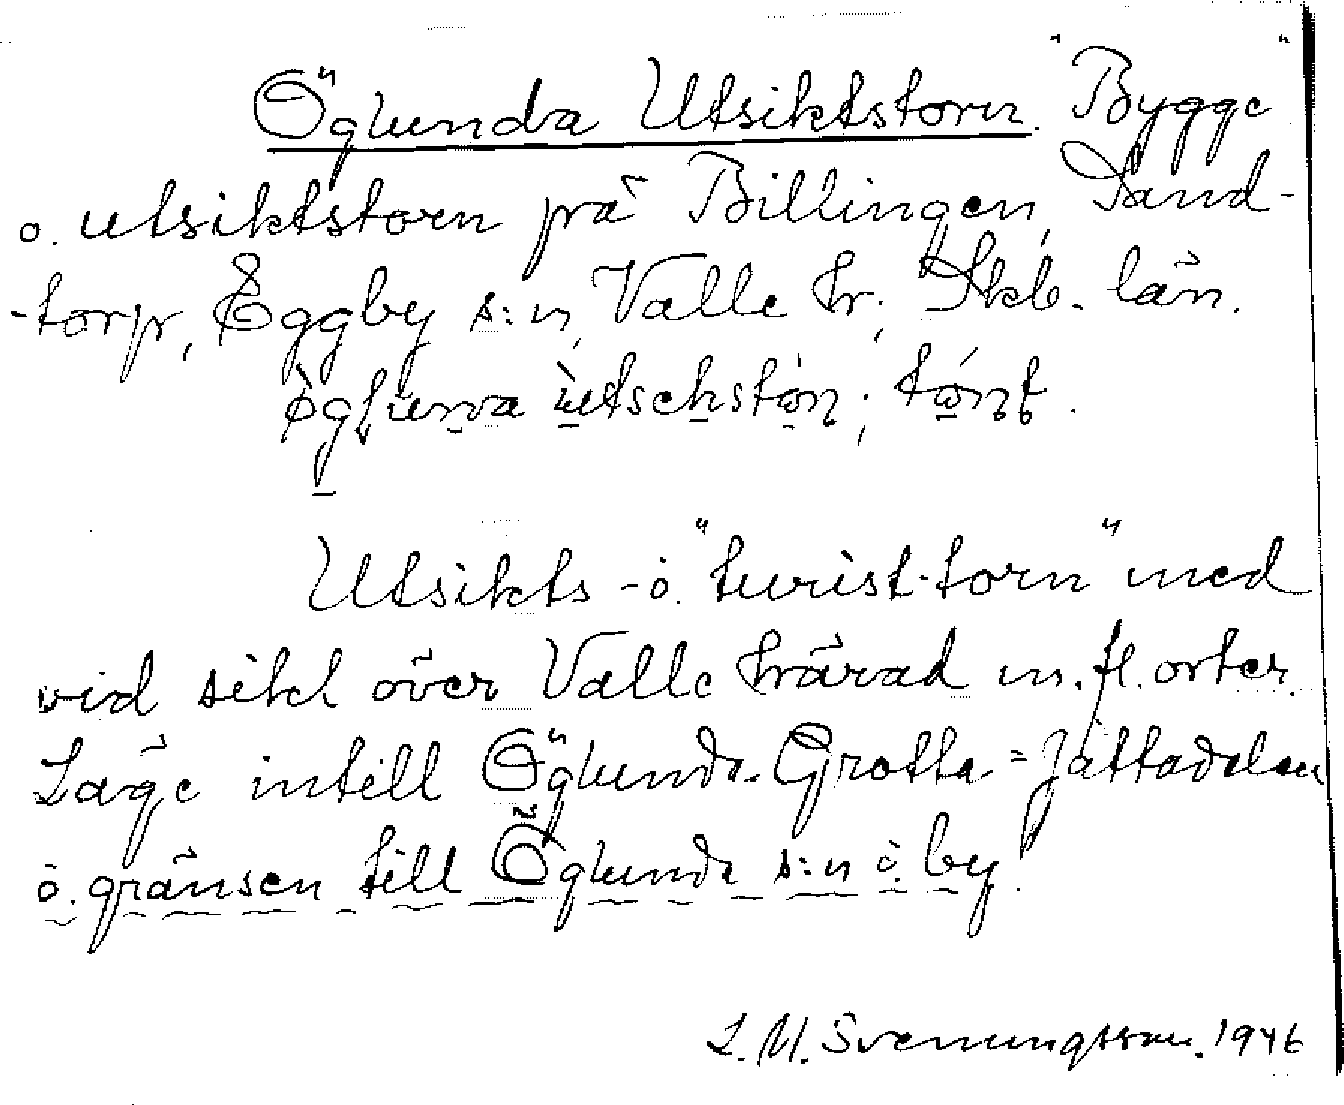 Öglunda Utsiktstorn. "Bygge"
o. utsiktstorn på Billingen, Sand-
-torp, Eggby s:n, Valle hr; Skb. län.
Utsikts- o. "turist-torn" med
vid sikt över Valle härad m.fl. orter.
Läge intill Öglunda Grotta = Jättadalen
o. gränsen till Öglunda s:n o. by.
L. M. Svenungsson. 1946